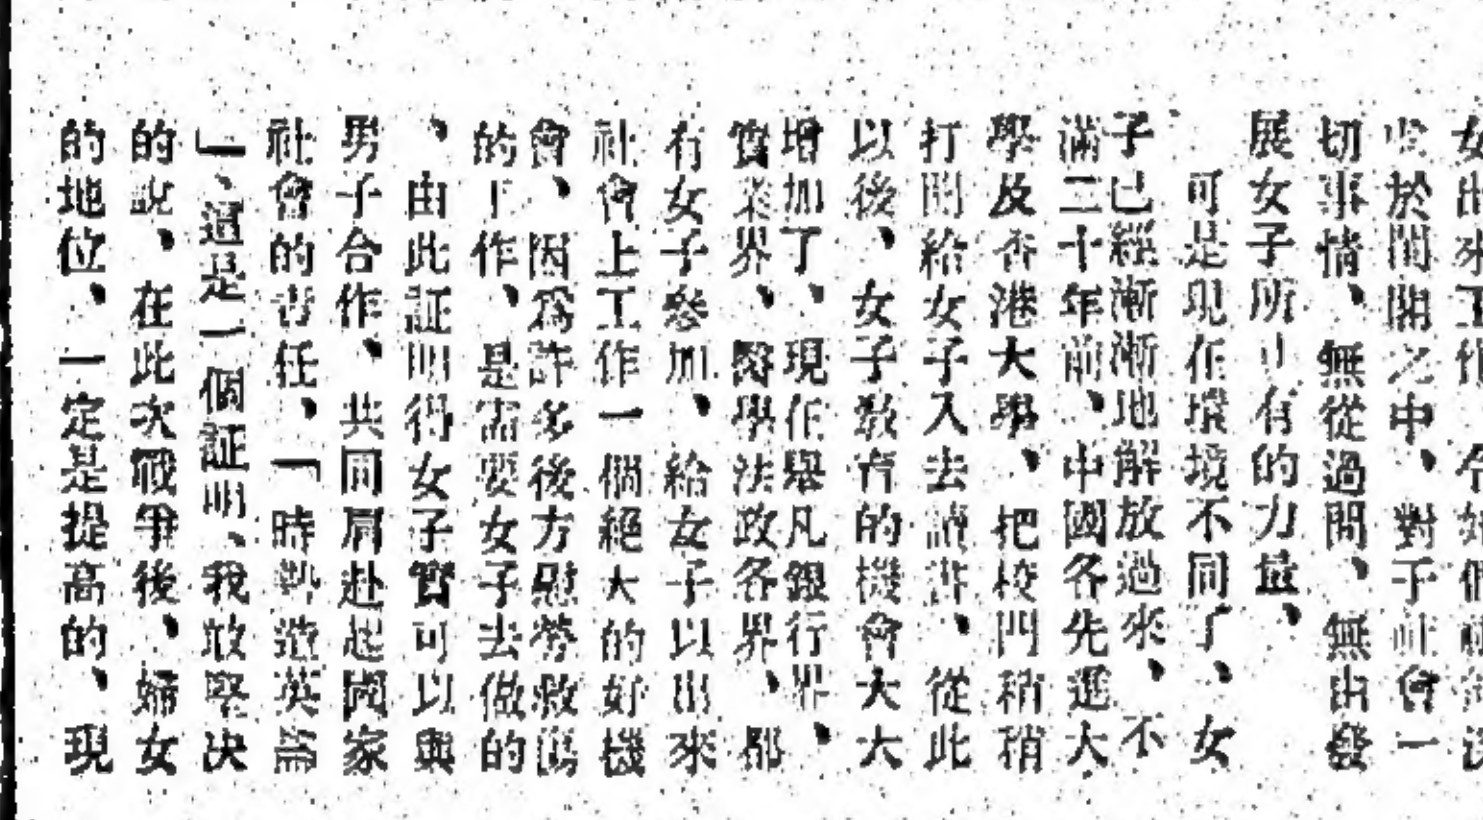 女出來工作、今如個
於閨閫之中、對于社會一
切事情、無從過問、無由發
展女子所有的力量、
可是現在環境不同了、女
子已經漸漸地解放過來、不
滿二十年前、中國各先進大
學及香港大學、把校門稍稍
打開給女子入去讀書、從此
以後、女子敎育的機會大大
增加了、現在舉凡銀行界、
實業界、醫學法政各界、都
有女子參加、給女子以出來
社會上工作一個絕大的好機
會、因爲許多後方慰勞救傷
的工作、是需要女子去做的
、由此証明得女子實可以與
男子合作、共同肩赴起國家
社會的責任、「時勢造英雌
」、這是一個証明、我敢堅决
的說、在此次戰爭後、婦女
的地位、一定是提高的、現